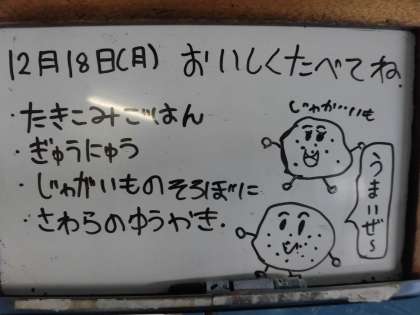 12月18日(月) おいしくたべてね.
・たきこみごはん
・ぎゅうにゅう
・じゃがいものそろぼに
・さわらのゆうがき.
じゃが…いも
うまいぜ〜